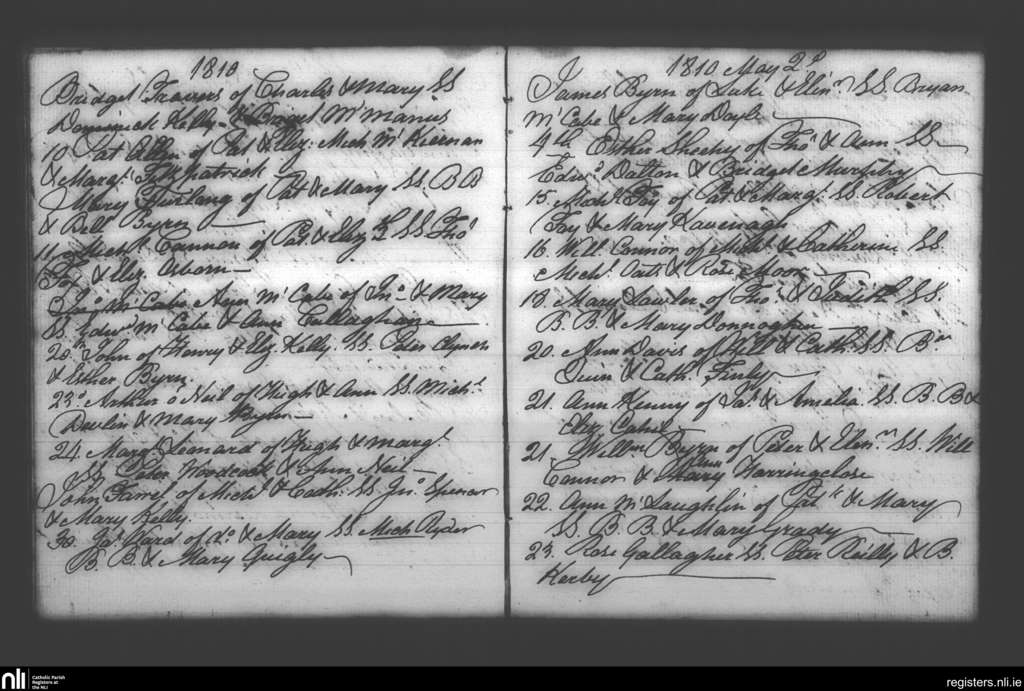 1810
Bridget Travers of Charles & Mary SS
Dominick Kelly & Bridget McManus
10 Pat Allen of Pat & Eliz. Mich McKiernan
& Margt Fitzpatrick
Mary Furlong of Pat & Mary SS. B B
& Bell Byrn
11 Michl Cannon of Pat. & Eliz SS Thos
Fox & Eliz. Osborn
Jno McCabe Ann McCabe of Jno & Mary
SS. Edwd McCabe & Ann Callaghan
20th John of Henry & Eliz. Kelly SS. Peter Clynch
& Esther Byrn
23d Arthur o Neil of Hugh & Ann SS. Michl
Devlin & Mary
24 Margt Leonard of Hugh & Margt
SS. Peter Woodcock & Ann Neil
John Farrel of Michl & Cath: SS Jno Spencer
& Mary Kelly.
30. Jas Ward of do & Mary SS. Mich Ryder
B. B. & Mary Quigly
1810 May 2d
James Byrn of Luke & Elinr SS Bryan
McCabe & Mary Doyle
4th Esther Sheehy of Thos & Ann SS
Edwd Dalton & Bridget Murphy
15. Michl Fay of Pat & Margt SS Robert
Fay & Mary Kavenagh
16. Will Connor of Michl & Catherine SS
Michl & Rose Moor
18. Mary Lawler of Thos & Judith SS
B. B. & Mary Donnoghue
20. Ann Davis of & Cath: SS.
Quin & Cath: Finly
21. Ann Kenny of Jas & Amelia SS B B &
Eliz. Cahil
21. Willm Byrn of Peter & Elinr SS. Will
Connor & Ann Mary Warringclose
22. Ann McLaughlin of Patk & Mary
SS. B. B. & Mary Grady
23. Rose Gallagher SS. Peter Reilly & B.
Kerby
nli
Catholic Parish
Registers at
the NLI
registers.nli.ie